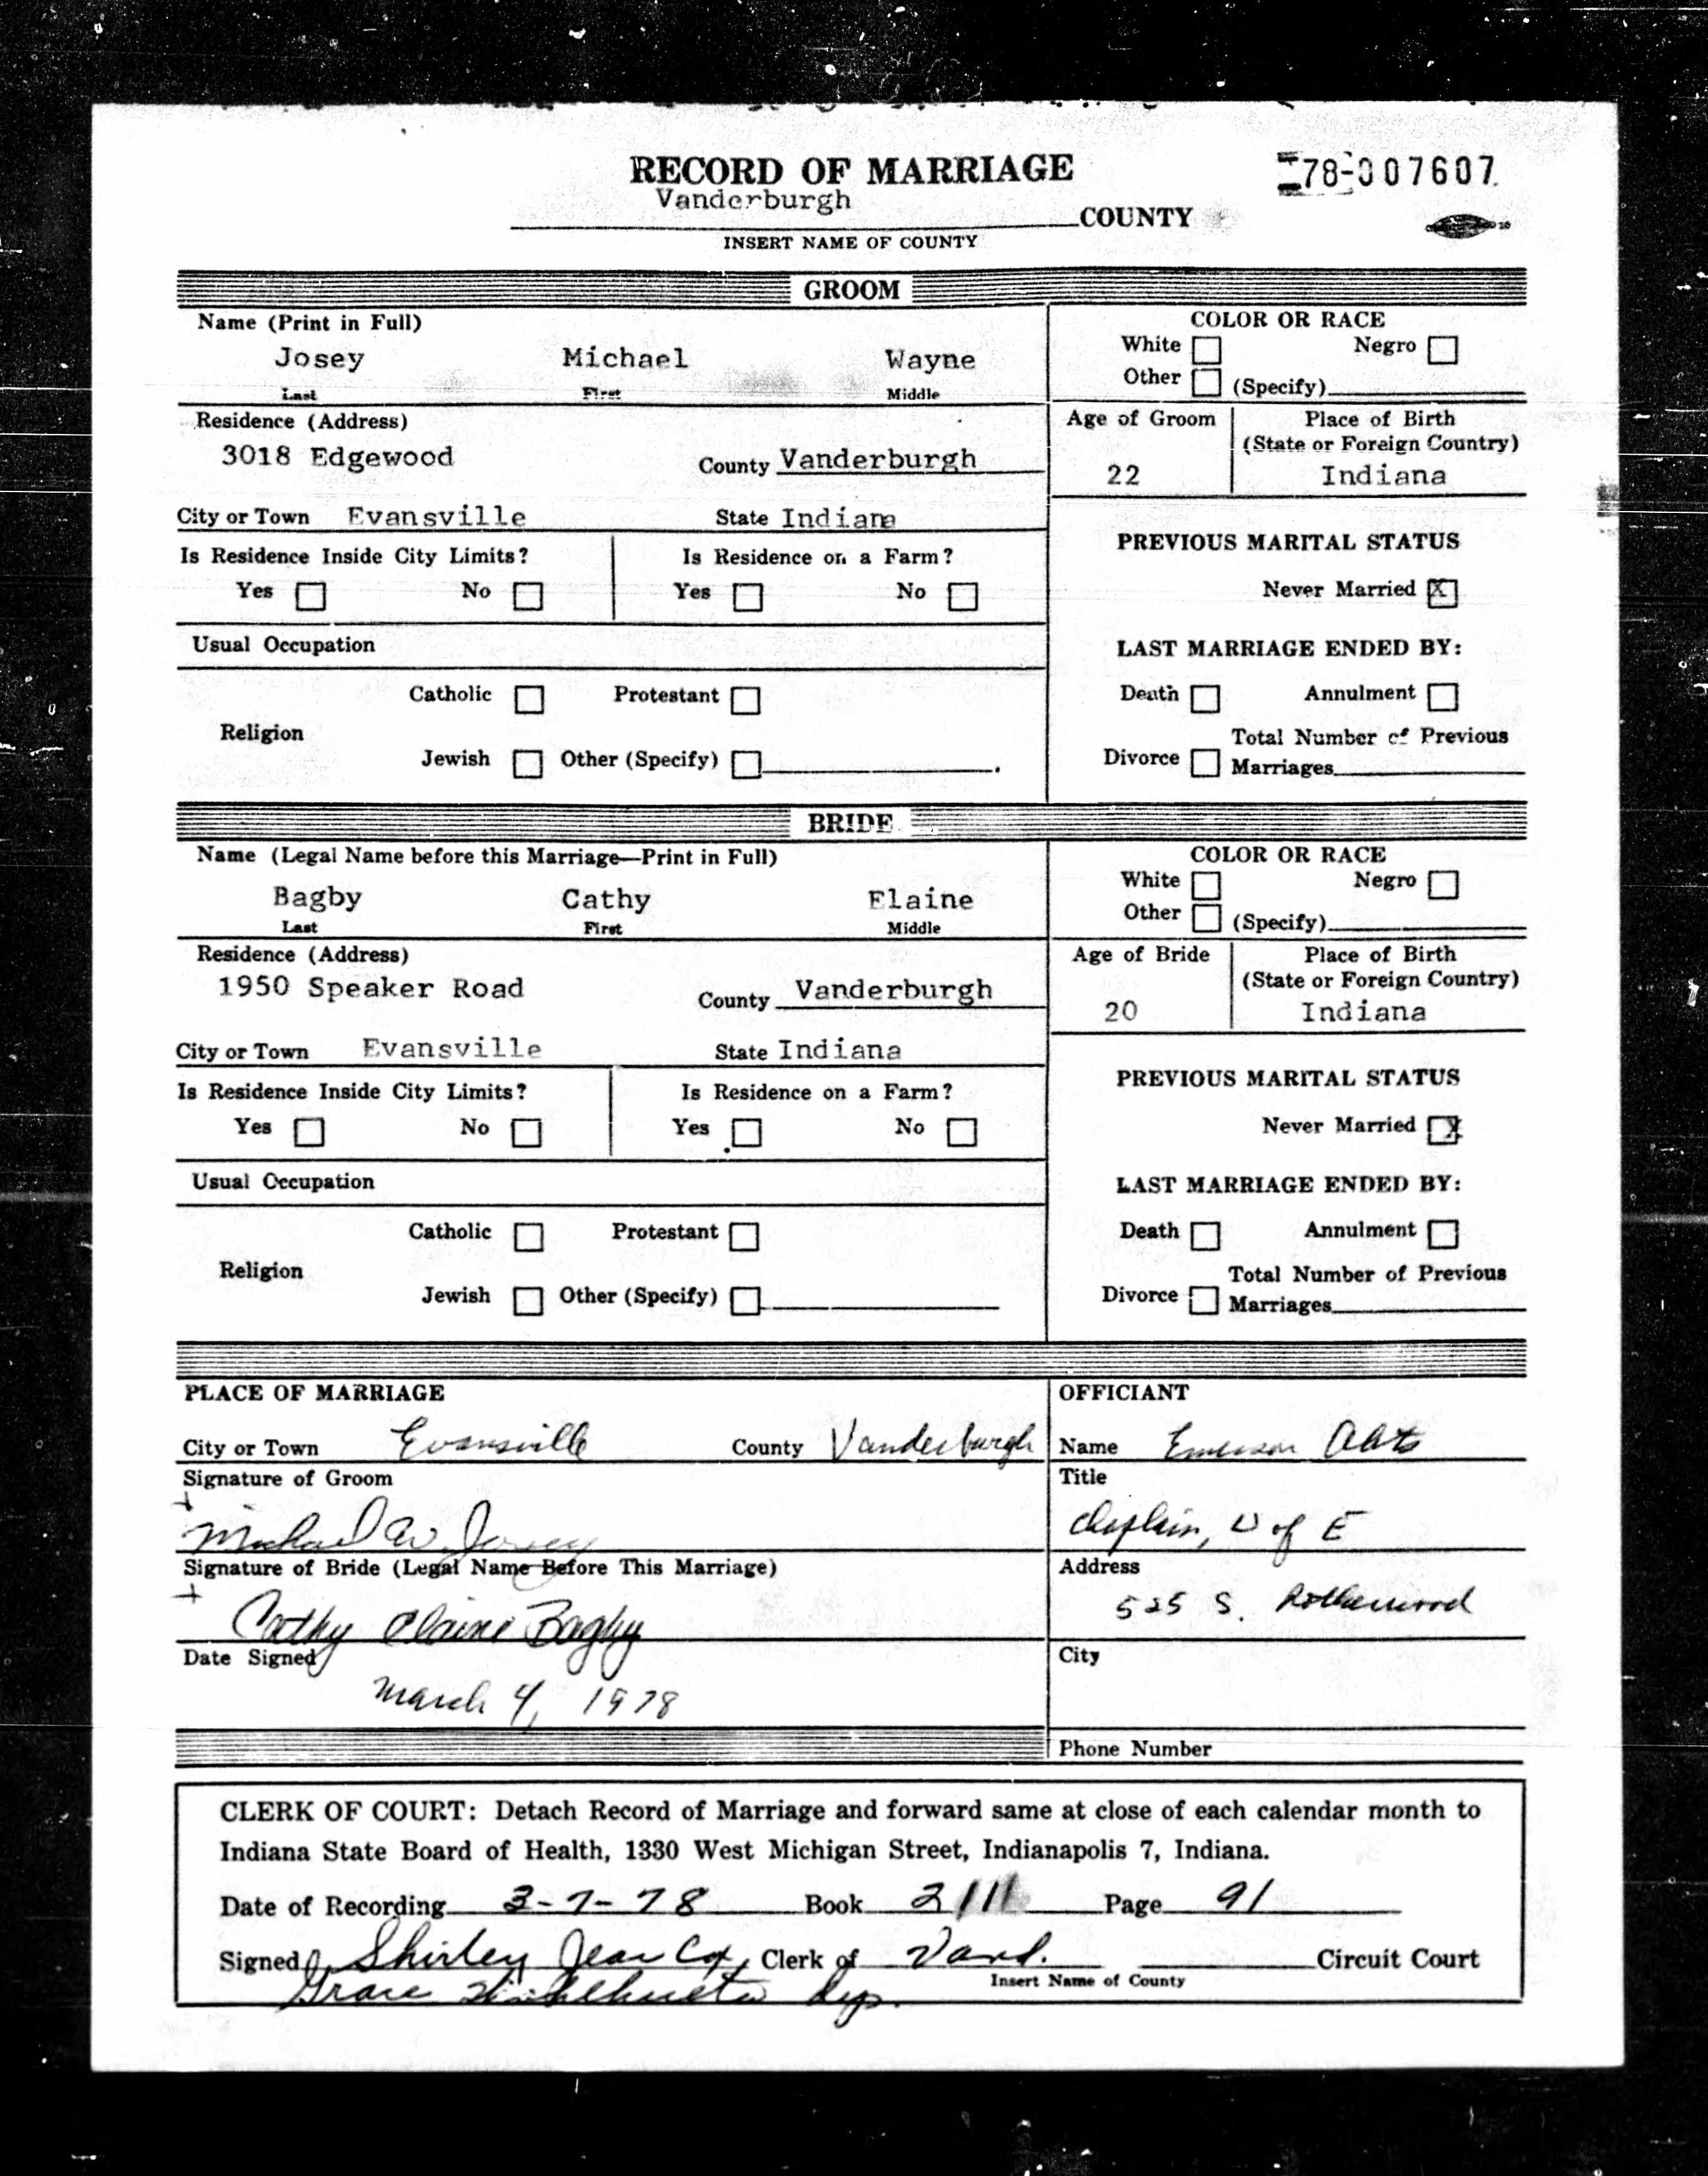 RECORD OF MARRIAGE
78-007607
Vanderburgh COUNTY
INSERT NAME OF COUNTY
GROOM
Name (Print in Full)
Josey Michael Wayne
Last First Middle
COLOR OR RACE
White Negro
Other (Specify)
Residence (Address)
3018 Edgewood County Vanderburgh
Age of Groom
22
Place of Birth
(State or Foreign Country)
Indiana
City or Town Evansville State Indiana
Is Residence Inside City Limits? Is Residence on a Farm?
Yes No Yes No
PREVIOUS MARITAL STATUS
Never Married X
Usual Occupation
LAST MARRIAGE ENDED BY:
Catholic Protestant
Religion
Jewish Other (Specify)
Death Annulment
Total Number of Previous
Divorce Marriages
BRIDE
Name (Legal Name before this Marriage—Print in Full)
Bagby Cathy Elaine
Last First Middle
COLOR OR RACE
White Negro
Other (Specify)
Residence (Address)
1950 Speaker Road County Vanderburgh
Age of Bride
20
Place of Birth
(State or Foreign Country)
Indiana
City or Town Evansville State Indiana
Is Residence Inside City Limits? Is Residence on a Farm?
Yes No Yes No
PREVIOUS MARITAL STATUS
Never Married X
Usual Occupation
LAST MARRIAGE ENDED BY:
Catholic Protestant
Religion
Jewish Other (Specify)
Death Annulment
Total Number of Previous
Divorce Marriages
PLACE OF MARRIAGE
City or Town Evansville County Vanderburgh
Signature of Groom
Michael W. Josey
Signature of Bride (Legal Name Before This Marriage)
Cathy Elaine Bagby
Date Signed
March 4, 1978
OFFICIANT
Name Emerson
Title
Chaplain, U of E
Address
525 S. Rotherwood
City
Phone Number
CLERK OF COURT: Detach Record of Marriage and forward same at close of each calendar month to
Indiana State Board of Health, 1330 West Michigan Street, Indianapolis 7, Indiana.
Date of Recording 3-7-78 Book Page 91
Signed Shirley Jean Cox, Clerk of Vand. Circuit Court
Insert Name of County
Grace dep.